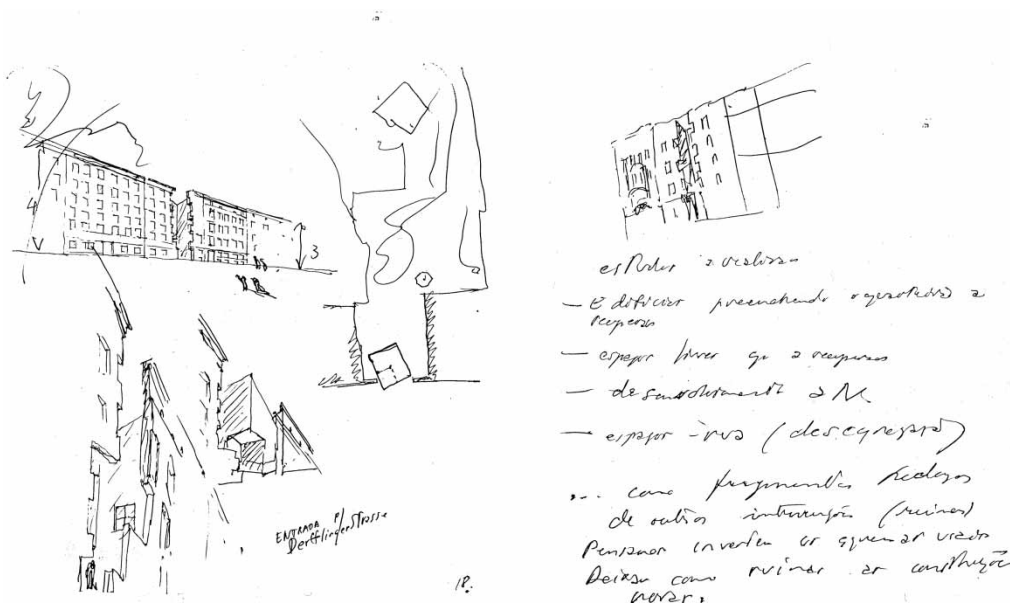 4
3
ENTRADA p/
Derfflingerstrasse
18.
estudos a realizar
— Edificios preenchendo o quarteirão a
recuperar
— espaços livres a recuperar
— desenvolvimento a N.
— espaços - rua (desegregação)
... como fragmentos
de outras intervenções (ruinas)
Pensamos inverter os esquemas usados
Deixar como ruinas as construções
novas.